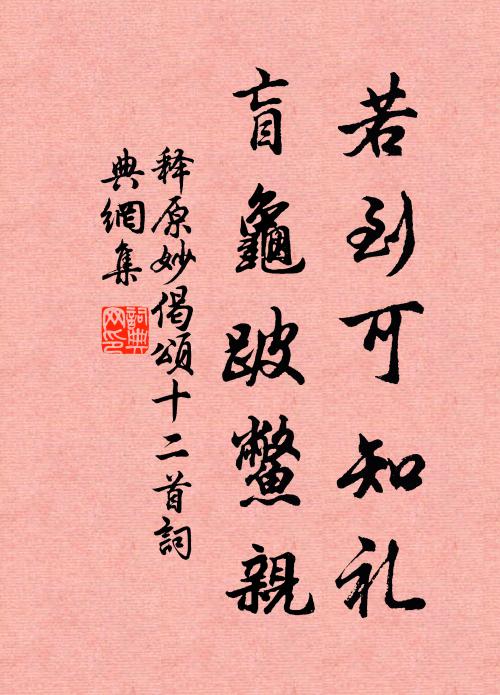 若到可知礼
盲龜跛鱉親
释原妙偈頌十二首詞
典網集
詞典網印